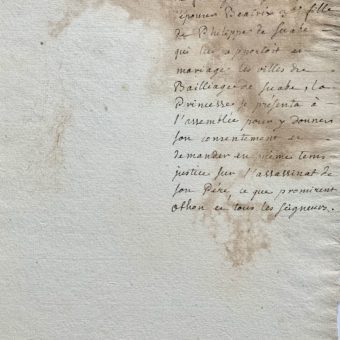 épouser Beatrix 3e fille
de Philippe de Suabe
qui lui apportoit en
mariage les villes de
Bailliage de Suabe, la
Princesse se présenta à
l'assemblée pour y donner
son consentement et
demander en même tems
justice sur l'assassinat de
son Père, ce que promirent
Othon et tous les Seigneurs.